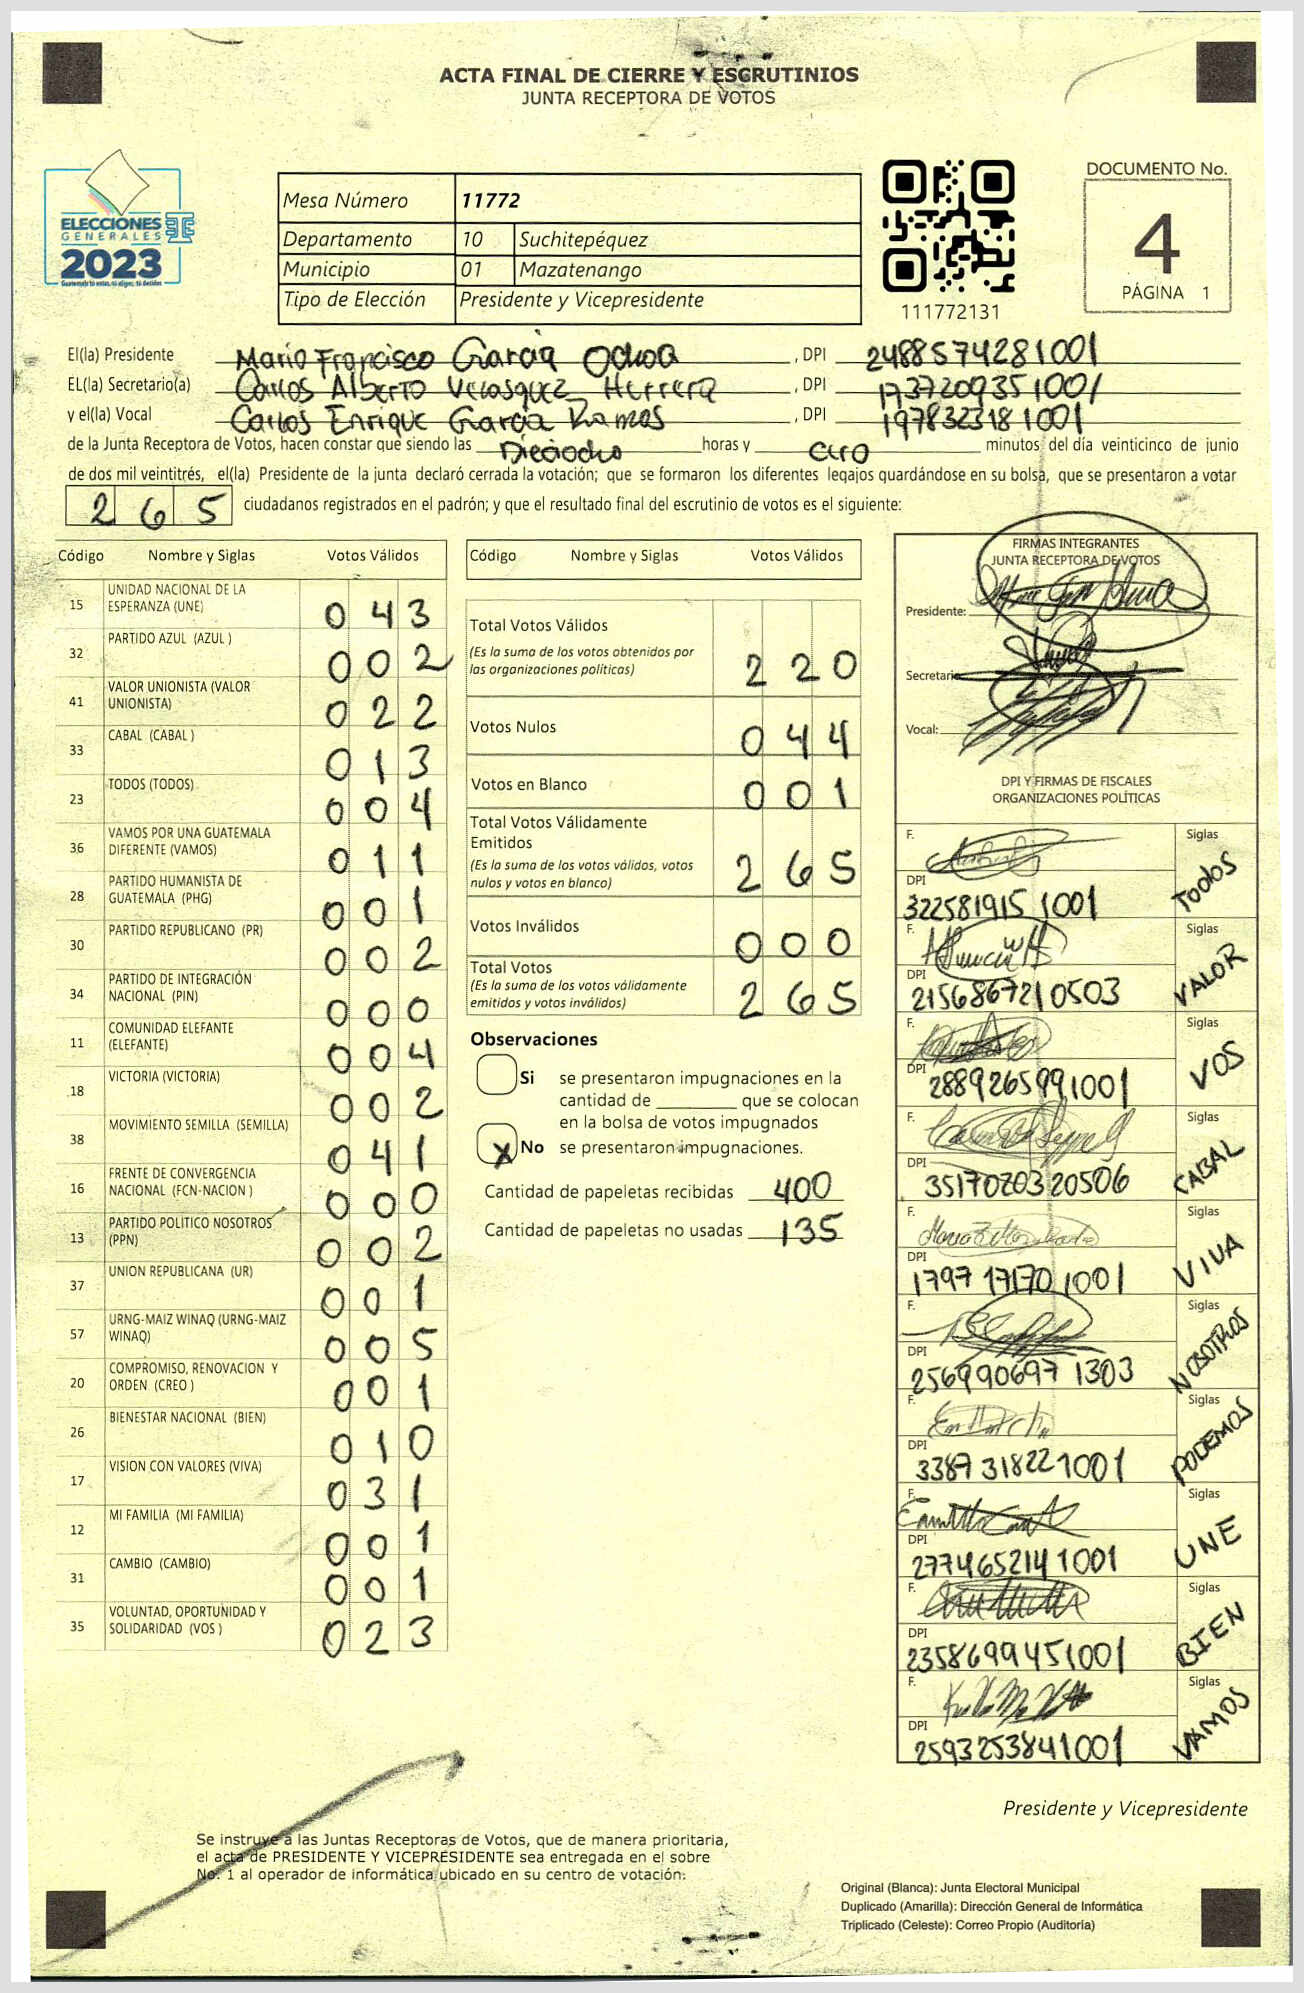 ACTA FINAL DE CIERRE Y ESCRUTINIOS
JUNTA RECEPTORA DE VOTOS
ELECCIONES
GENERALES
2023
Guatemala tú eres, tú eliges, tú decides
Mesa Número 11772
Departamento 10 Suchitepéquez
Municipio 01 Mazatenango
Tipo de Elección Presidente y Vicepresidente
111772131
DOCUMENTO No.
4
PÁGINA 1
El(la) Presidente Mario Francisco García Ochoa , DPI 2488574281001
EL(la) Secretario(a) Carlos Alberto Velasquez Herrera , DPI 1737209351001
y el(la) Vocal Carlos Enrique García Ramos , DPI 1978323181001
de la Junta Receptora de Votos, hacen constar que siendo las Dieciocho horas y Cero minutos del día veinticinco de junio
de dos mil veintitrés, el(la) Presidente de la junta declaró cerrada la votación; que se formaron los diferentes legajos quardándose en su bolsa, que se presentaron a votar
265 ciudadanos registrados en el padrón; y que el resultado final del escrutinio de votos es el siguiente:
Código Nombre y Siglas Votos Válidos
15 UNIDAD NACIONAL DE LA
ESPERANZA (UNE) 043
32 PARTIDO AZUL (AZUL ) 002
41 VALOR UNIONISTA (VALOR
UNIONISTA) 022
33 CABAL (CABAL ) 013
23 TODOS (TODOS) 004
36 VAMOS POR UNA GUATEMALA
DIFERENTE (VAMOS) 011
28 PARTIDO HUMANISTA DE
GUATEMALA (PHG) 001
30 PARTIDO REPUBLICANO (PR) 002
34 PARTIDO DE INTEGRACIÓN
NACIONAL (PIN) 000
11 COMUNIDAD ELEFANTE
(ELEFANTE) 004
18 VICTORIA (VICTORIA) 002
38 MOVIMIENTO SEMILLA (SEMILLA) 041
16 FRENTE DE CONVERGENCIA
NACIONAL (FCN-NACION ) 000
13 PARTIDO POLÍTICO NOSOTROS
(PPN) 002
37 UNION REPUBLICANA (UR) 001
57 URNG-MAIZ WINAQ (URNG-MAIZ
WINAQ) 005
20 COMPROMISO, RENOVACION Y
ORDEN (CREO ) 001
26 BIENESTAR NACIONAL (BIEN) 010
17 VISION CON VALORES (VIVA) 031
12 MI FAMILIA (MI FAMILIA) 001
31 CAMBIO (CAMBIO) 001
35 VOLUNTAD, OPORTUNIDAD Y
SOLIDARIDAD (VOS ) 023
Código Nombre y Siglas Votos Válidos
Total Votos Válidos
(Es la suma de los votos obtenidos por
las organizaciones políticas) 220
Votos Nulos 044
Votos en Blanco 001
Total Votos Válidamente
Emitidos
(Es la suma de los votos válidos, votos
nulos y votos en blanco) 265
Votos Inválidos 000
Total Votos
(Es la suma de los votos válidamente
emitidos y votos inválidos) 265
Observaciones
Si se presentaron impugnaciones en la
cantidad de ________ que se colocan
en la bolsa de votos impugnados
X No se presentaron impugnaciones.
Cantidad de papeletas recibidas 400
Cantidad de papeletas no usadas 135
FIRMAS INTEGRANTES
JUNTA RECEPTORA DE VOTOS
Presidente:
Secretario
Vocal:
DPI Y FIRMAS DE FISCALES
ORGANIZACIONES POLÍTICAS
F. Siglas
DPI 322581915 1001 TODOS
F. Siglas
DPI 2156867210503 VALOR
F. Siglas
DPI 2889265991001 VOS
F. Siglas
DPI 3517020320506 CABAL
F. Siglas
DPI 1797 17170 1001 VIVA
F. Siglas
DPI 256990697 1303 NOSOTROS
F. Siglas
DPI 3387 31822 1001 PODEMOS
F. Siglas
DPI 2774652141001 UNE
F. Siglas
DPI 2358699451001 BIEN
F. Siglas
DPI 2593253841001 VAMOS
Presidente y Vicepresidente
Se instruye a las Juntas Receptoras de Votos, que de manera prioritaria,
el acta de PRESIDENTE Y VICEPRESIDENTE sea entregada en el sobre
No. 1 al operador de informática ubicado en su centro de votación.
Original (Blanca): Junta Electoral Municipal
Duplicado (Amarilla): Dirección General de Informática
Triplicado (Celeste): Correo Propio (Auditoría)